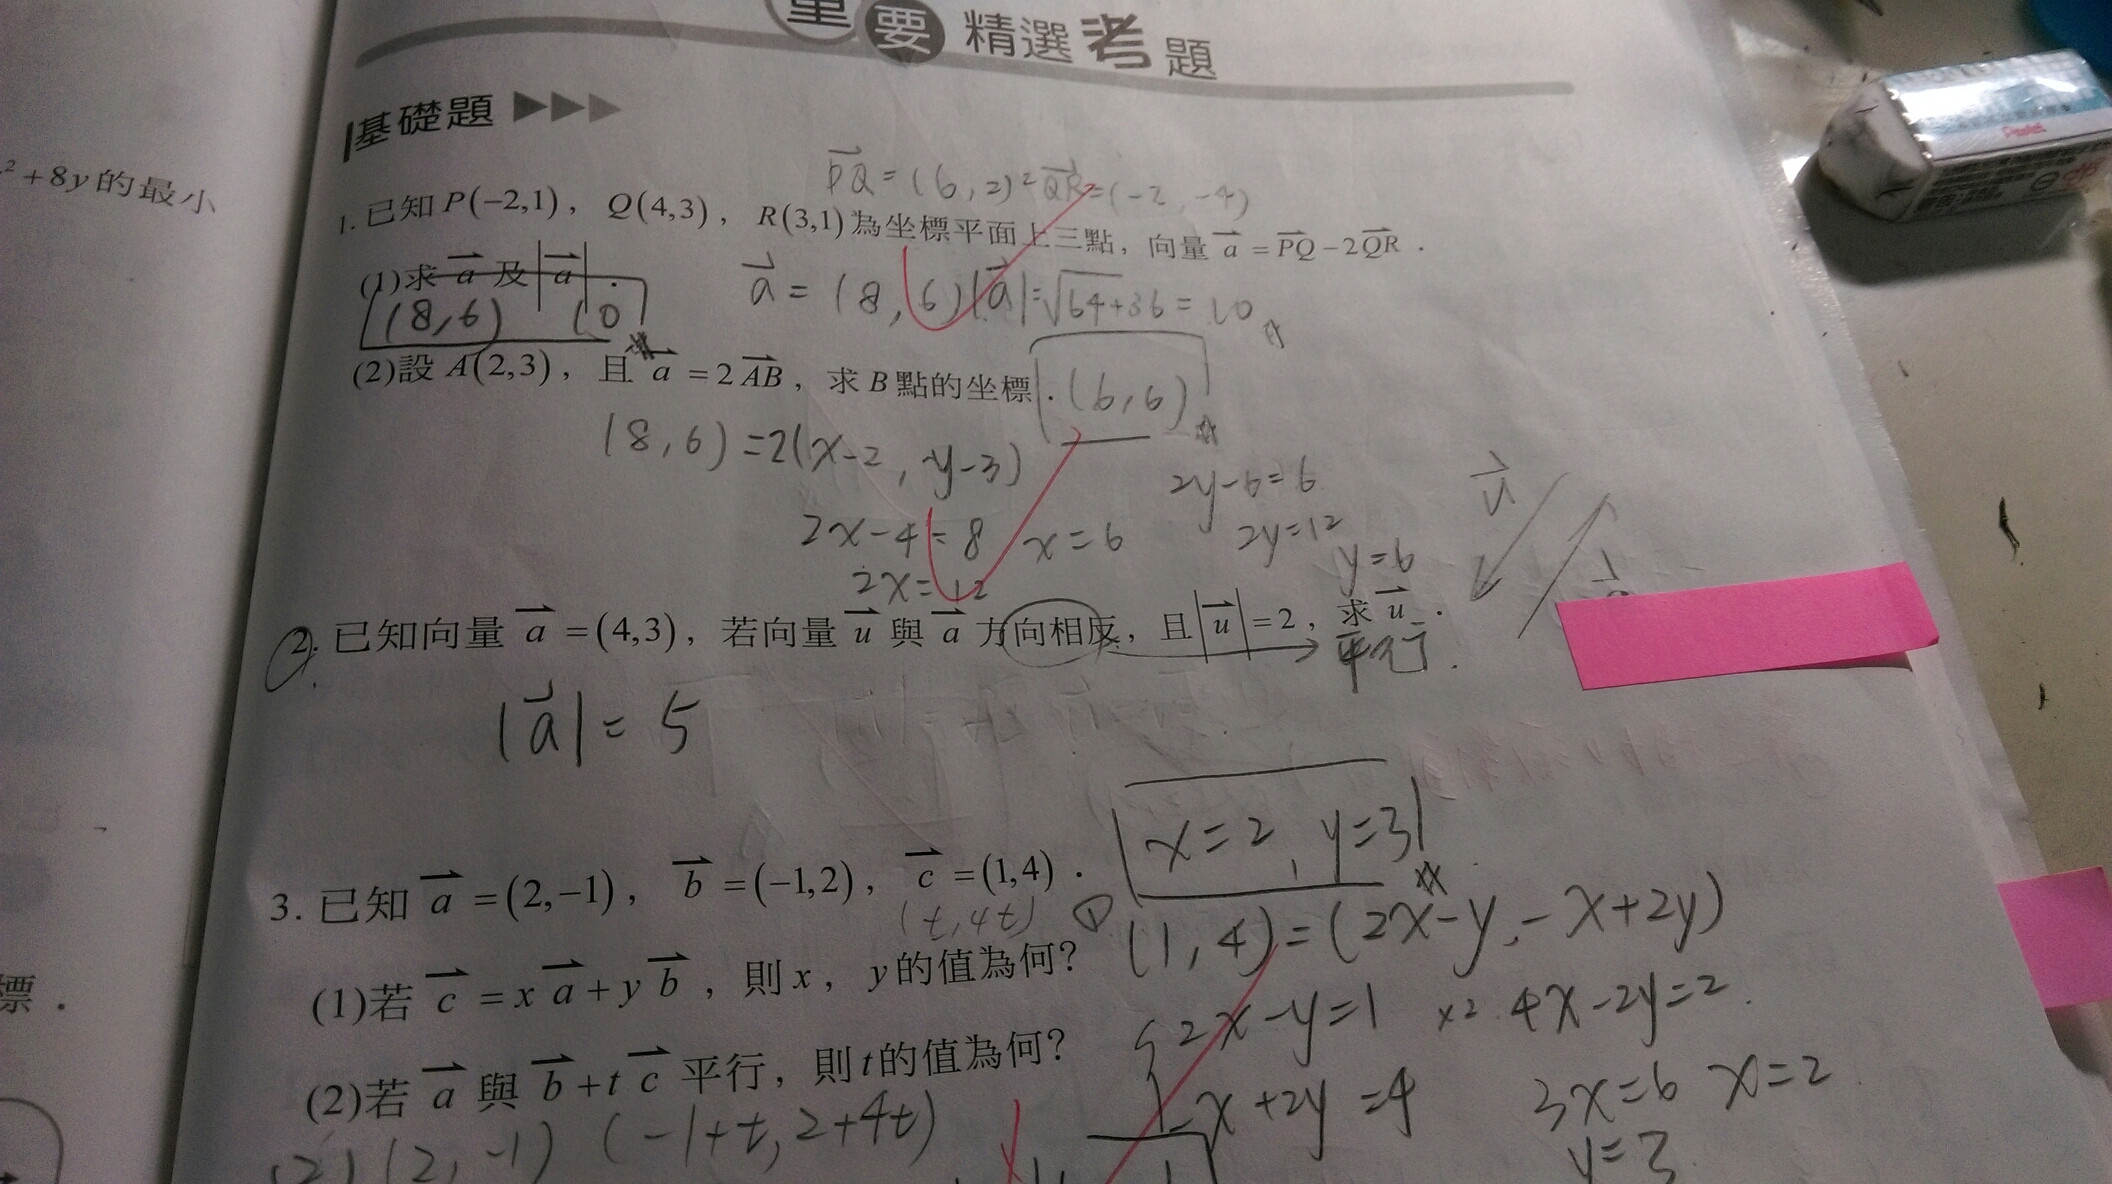 重要精選考題
基礎題
²+8y的最小
PQ=(6,2) 2QR=(-2,-4)
1.已知P(−2,1)，Q(4,3)，R(3,1)為坐標平面上三點，向量a=PQ−2QR．
(1)求a及|a|．
(8,6) 10
a=(8,6) |a|=√64+36=10
(2)設A(2,3)，且a=2AB，求B點的坐標．
(6,6)
(8,6)=2(x-2,y-3)
2y-6=6
2x-4=8 x=6
2y=12
2x=12
y=6
u
2.已知向量a=(4,3)，若向量u與a方向相反，且|u|=2，求u．
平行.
|a|=5
x=2, y=3
3.已知a=(2,−1)，b=(−1,2)，c=(1,4)．
(t,4t) ①
(1,4)=(2x-y,-x+2y)
(1)若c=xa+yb，則x，y的值為何?
2x-y=1 x2 4x-2y=2
(2)若a與b+tc平行，則t的值為何?
-x+2y=4 3x=6 x=2
y=3
(2) (2,-1) (-1+t,2+4t)
標．
Pentel